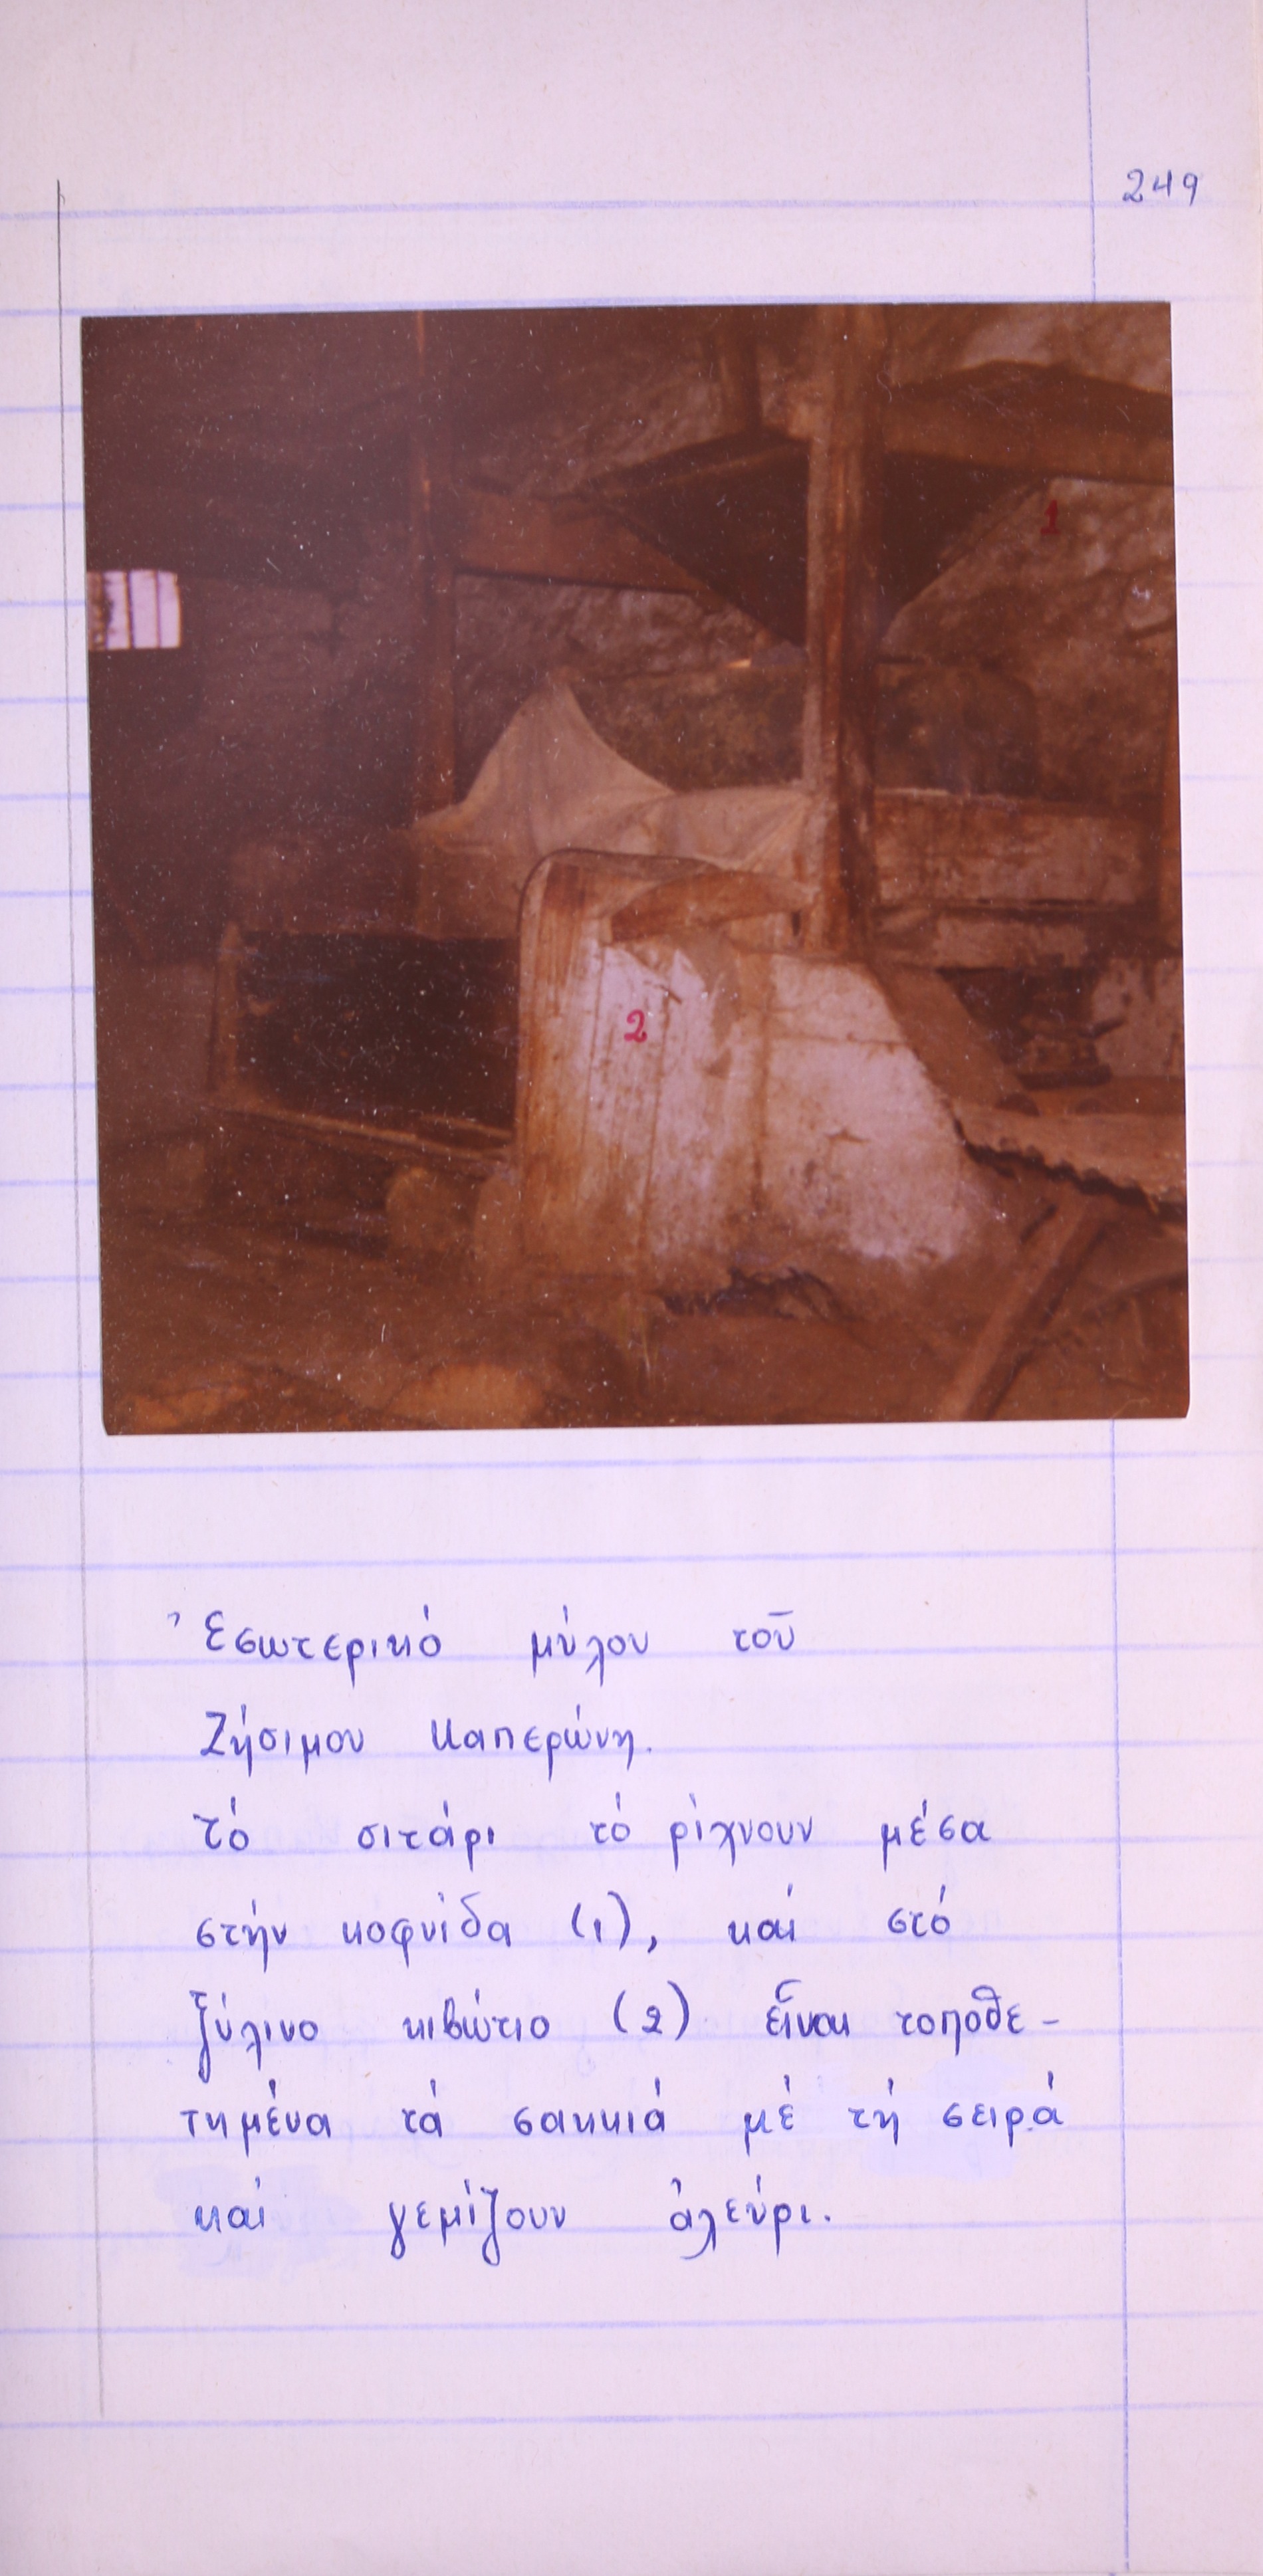 249
1
2
Ἐσωτερικό μύλου τοῦ
Ζήσιμου Καπερώνη.
τό σιτάρι τό ρίχνουν μέσα
στήν κοφνίδα (1), καί στό
ξύλινο κιβώτιο (2) εἶναι τοποθε-
τημένα τά σακκιά μέ τή σειρά
καί γεμίζουν ἀλεύρι.